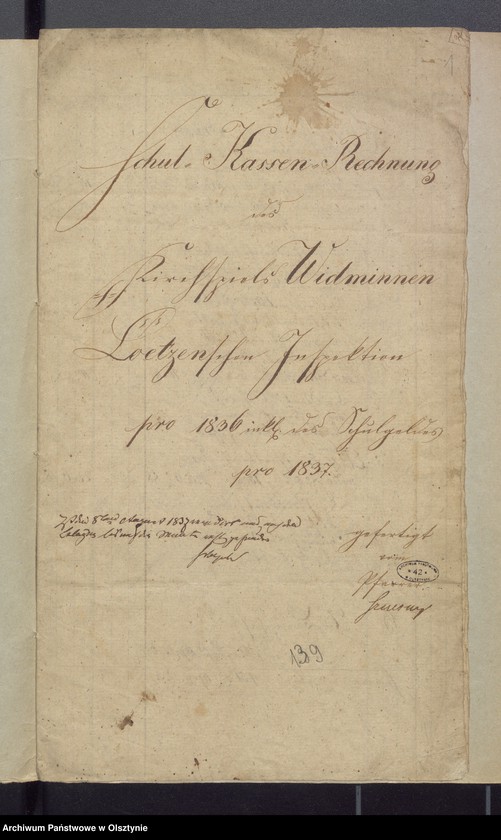 Schul-Kassen-Rechnung
des
Kirchspiels Widminnen
Loetzenschen Inspektion
pro 1836 inkl. des Schulgeldes
pro 1837.
den 8ten 1837
gefertigt
vom
Pfarrer
42
139
Archiwum Państwowe w Olsztynie